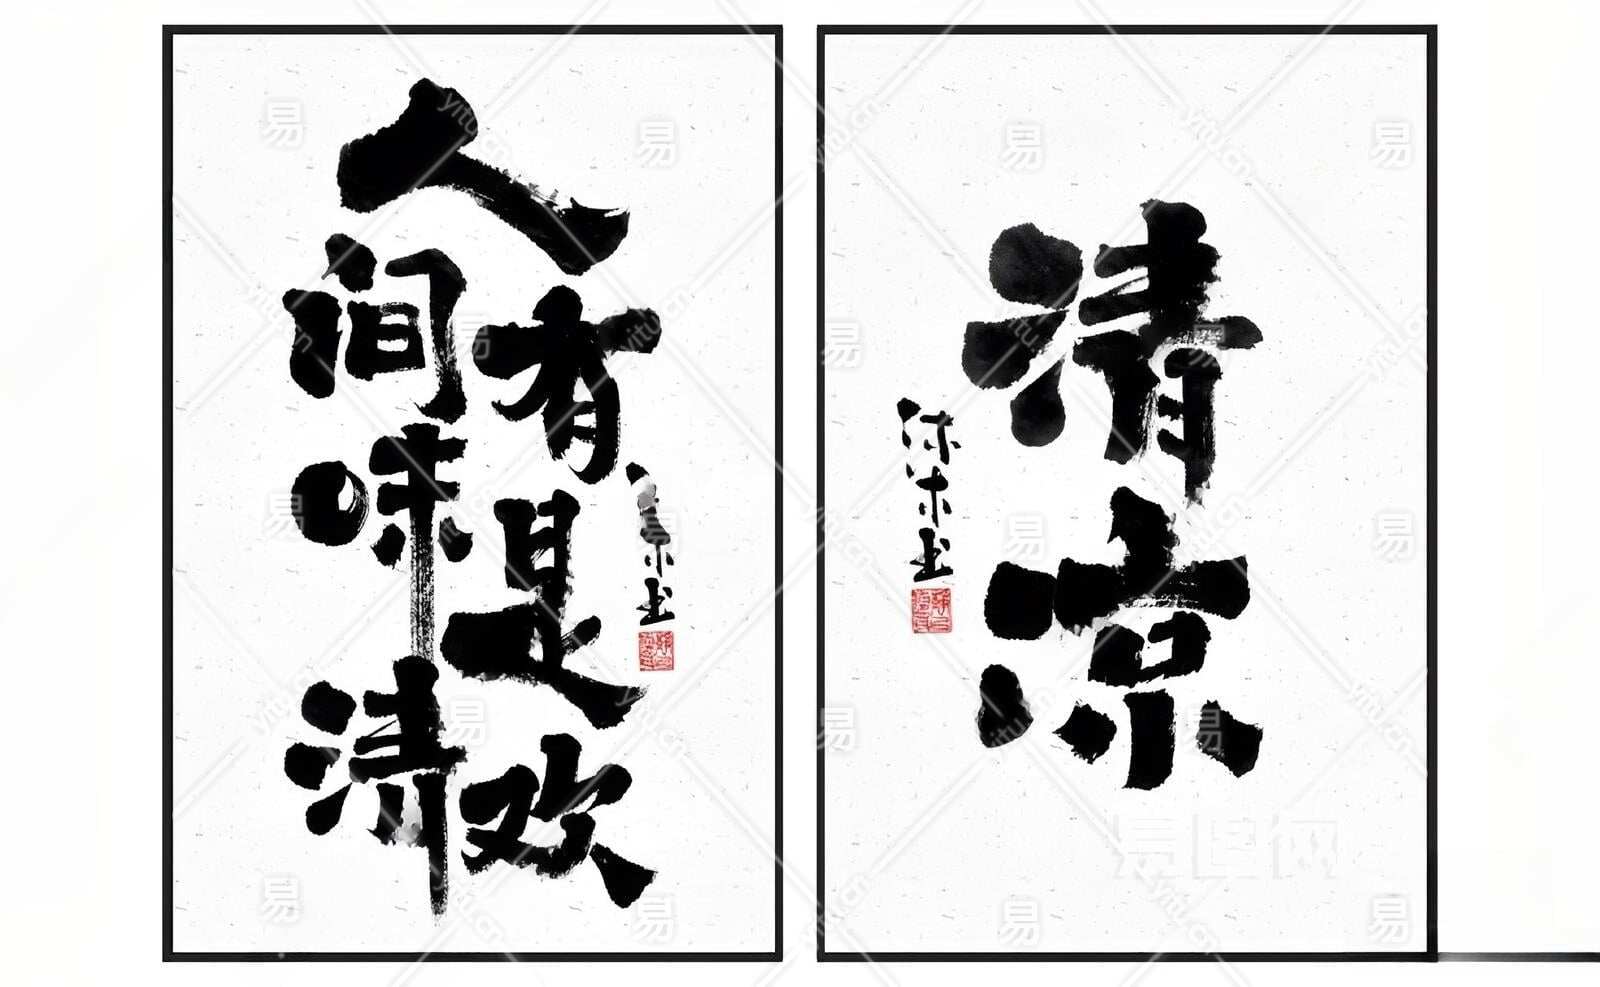 人
间有
味是
清欢
清
凉
沐木书
易图网
易 yitu.cn